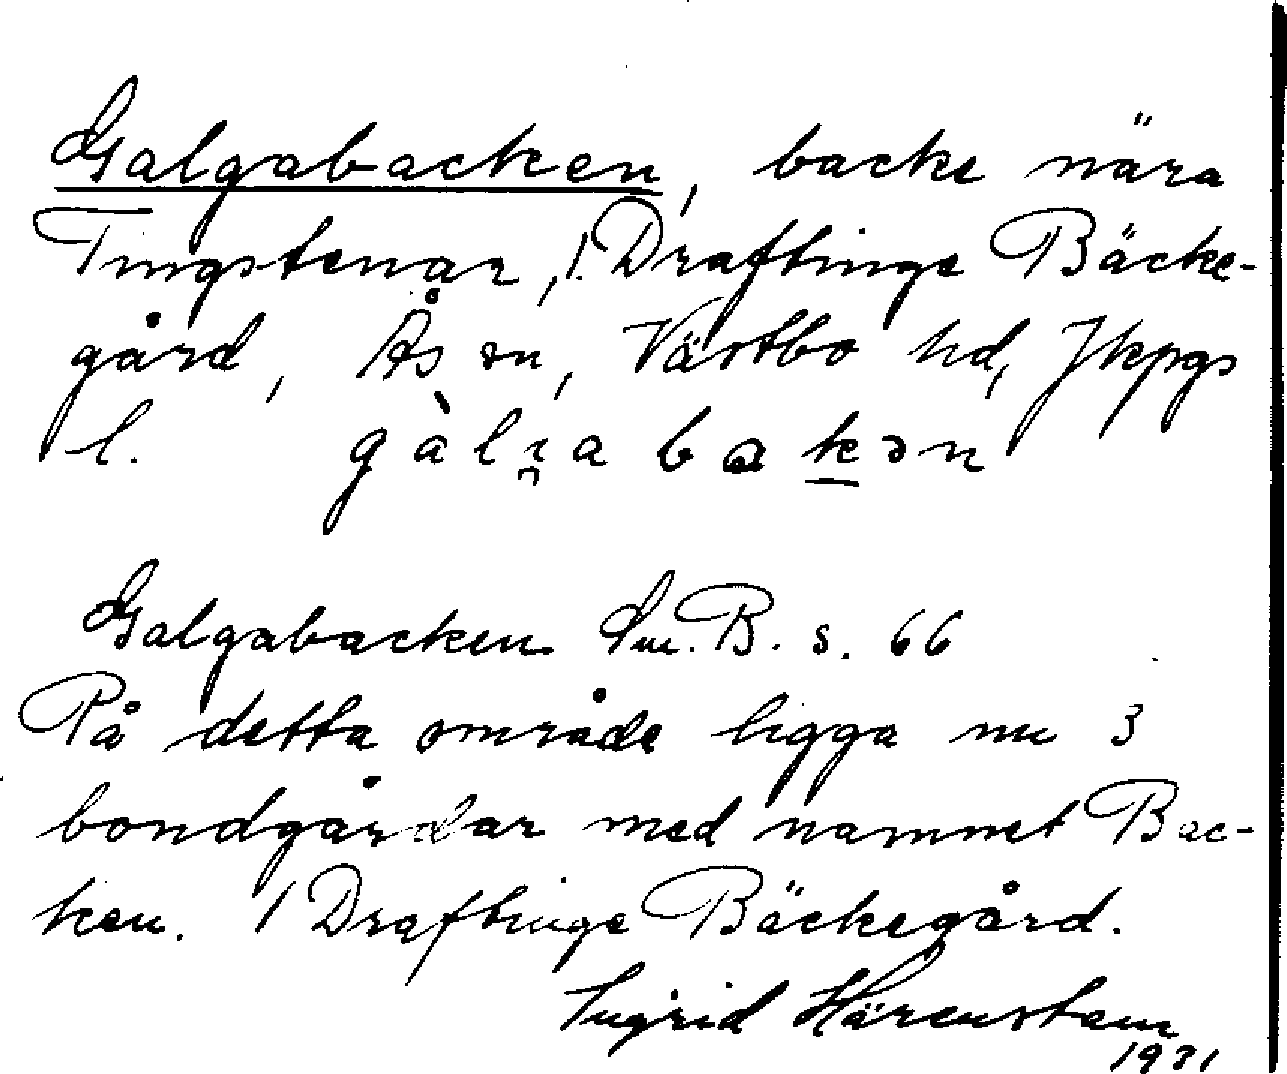 Galgabacken, backe nära
Tingstenar, 1 Draftinge Bäcke-
gård, Ås sn, Västbo hd, Jkpgs
l. gàlgabakən
Galgabacken Sm. B. s. 66
På detta område ligga nu 3
bondgårdar med namnet Bac-
ken. 1 Draftinge Bäckegård.
Ingrid Härenstam
1931